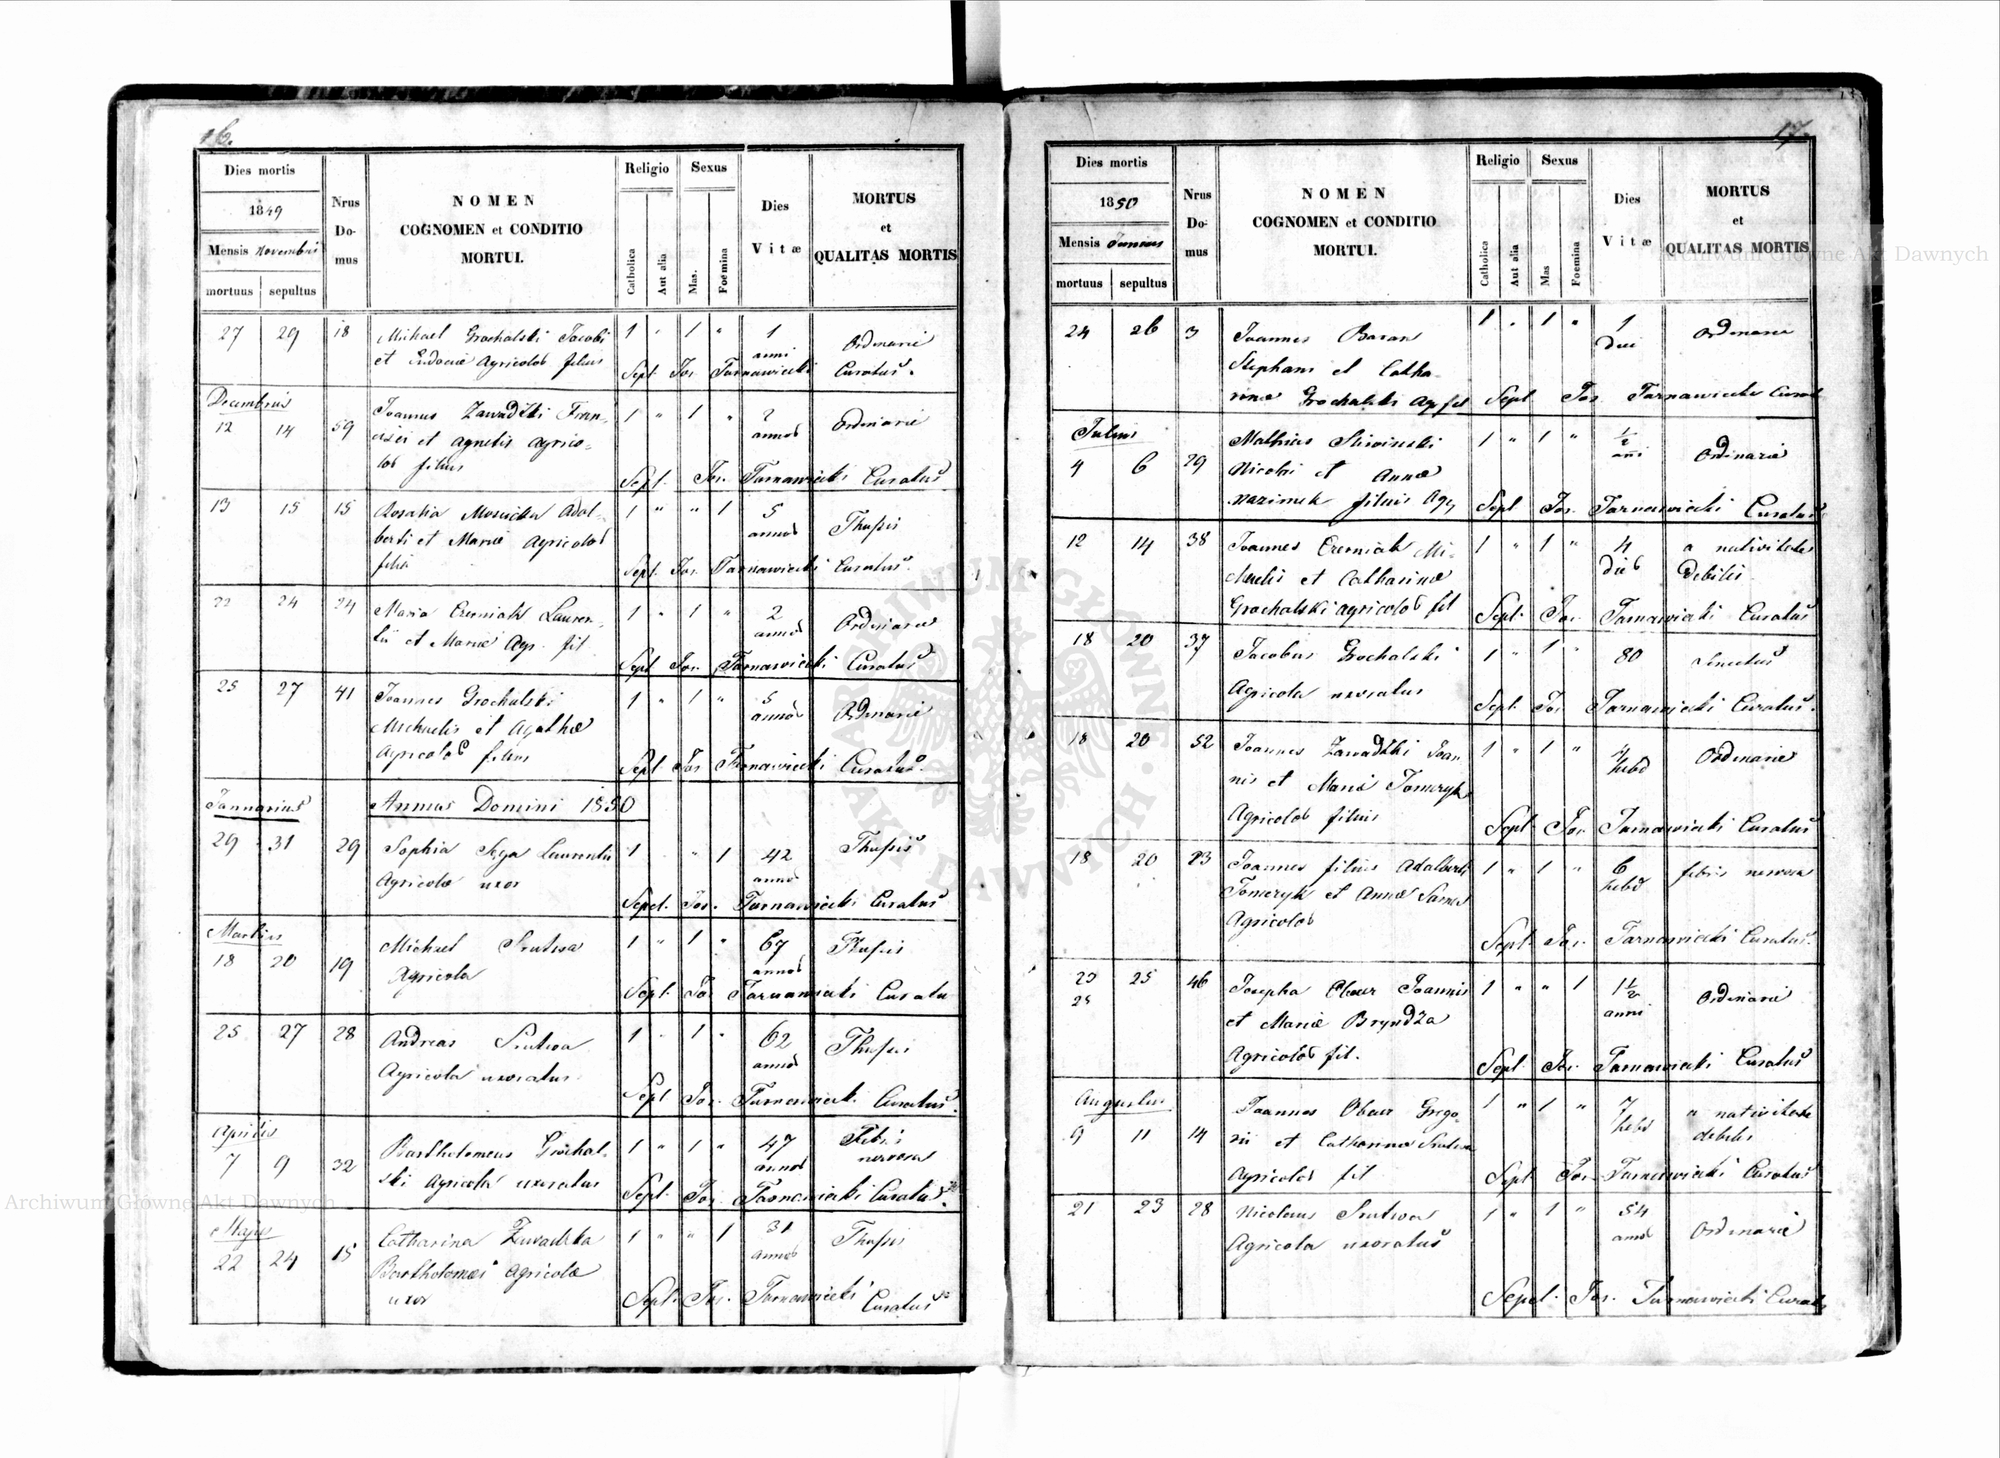 16.
Dies mortis
1849
Mensis Novembris
mortuus sepultus
Nrus Do- mus
NOMEN
COGNOMEN et CONDITIO
MORTUI.
Religio
Catholica Aut alia
Sexus
Mas. Foemina
Dies
Vitæ
MORTUS
et
QUALITAS MORTIS
27 29 18 Michael Grochalski Jacobi 1 " 1 " 1 Ordinarie
et Eudociæ Agricolos filius anni
Sept. Jos. Tarnawiecki Curatus.
Decembris
12 14 59 Joannes Zawadzki Fran- 1 " 1 " 2 Ordinarie
cisci et Agnetis Agrico- annos
los filius Sept. Jos. Tarnawiecki Curatus
13 15 15 Rosalia Adal- 1 " " 1 5 Thussis
berti et Mariæ Agricolos annos
filia Sept. Jos. Tarnawiecki Curatus.
22 24 24 Maria Czerniak Lauren- 1 " 1 " 2 Ordinarie
tii et Mariæ Agr. fil annos
Sept Jos. Tarnawiecki Curatus
25 27 41 Joannes Grochalski 1 " 1 " 5 Ordinarie
Michaelis et Agathæ annos
Agricolos filius Sept Jos Tarnawiecki Curatus.
Januarius Annus Domini 1850
29 31 29 Sophia Laurentii 1 " 1 42 Thussis
Agricolæ uxor annos
Sepel. Jos. Tarnawiecki Curatus
Martius
18 20 19 Michael Srutwa 1 " 1 " 67 Thussis
Agricola annos
Sept. Jos Tarnawiecki Curatu
25 27 28 Andreas Srutwa 1 " 1 " 62 Thussis
Agricola uxoratus annos
Sept Jos. Tarnawiecki Curatus.
Aprilis
7 9 32 Bartholomeus Grochal- 1 " 1 " 47 Febris
ski Agricola uxoratus annos nervosa
Sept. Jos. Tarnawiecki Curatus.
Majus
22 24 15 Catharina Zawadzka 1 " " 1 31 Thussis
Bartholomæi Agricolæ annos
uxor Sept. Jos. Tarnawiecki Curatus
17.
Dies mortis
1850
Mensis Junius
mortuus sepultus
Nrus Do- mus
NOMEN
COGNOMEN et CONDITIO
MORTUI.
Religio
Catholica Aut alia
Sexus
Mas Foemina
Dies
Vitæ
MORTUS
et
QUALITAS MORTIS
24 26 3 Joannes Baran 1 " 1 " 1 Ordinarie
Stephani et Catha- diei
rinæ Grochalski Agr fil Sept Jos. Tarnawiecki Curat
Julius
4 6 29 Mathias Sliwinski 1 " 1 " 1/2 Ordinarie
Nicolai et Annæ ani
Mazimek filius Agr. Sept Jos. Tarnawiecki Curatus
12 14 38 Joannes Czerniak Mi- 1 " 1 " 4 a nativitate
chaelis et Catharinæ dies debilis
Grochalski agricolos fil Sept. Jos. Tarnawiecki Curatus
18 20 37 Jacobus Grochalski 1 " 1 " 80 Senectus
Agricola uxoratus
Sept. Jos Tarnawiecki Curatus.
18 20 52 Joannes Zawadzki Joan- 1 " 1 " 4 Ordinarie
nis et Mariæ Tomczyk hebd
Agricolos filius Sept Jos. Tarnawiecki Curatus
18 20 23 Joannes filius Adalberti 1 " 1 " 6 febris nervosa
Tomczyk et Annæ hebd
Agricolos
Sept. Jos. Tarnawiecki Curatus.
23 25 46 Josepha Joannis 1 " " 1 1 1/2 Ordinarie
25 et Mariæ Bryndza anni
Agricolos fil. Sept. Jos. Tarnawiecki Curatus
Augustus
9 11 14 Joannes Grego- 1 " 1 " 7 a nativitate
rii et Catharinæ Srutwa hebd debilis
Agricolos fil Sept. Jos. Tarnawiecki Curatus
21 23 28 Nicolaus Srutwa 1 " 1 " 54 Ordinarie
Agricola uxoratus annos
Sepel. Jos. Tarnawiecki Curatus
Archiwum Główne Akt Dawnych
Archiwum Główne Akt Dawnych
ARCHIWUM GŁÓWNE AKT DAWNYCH